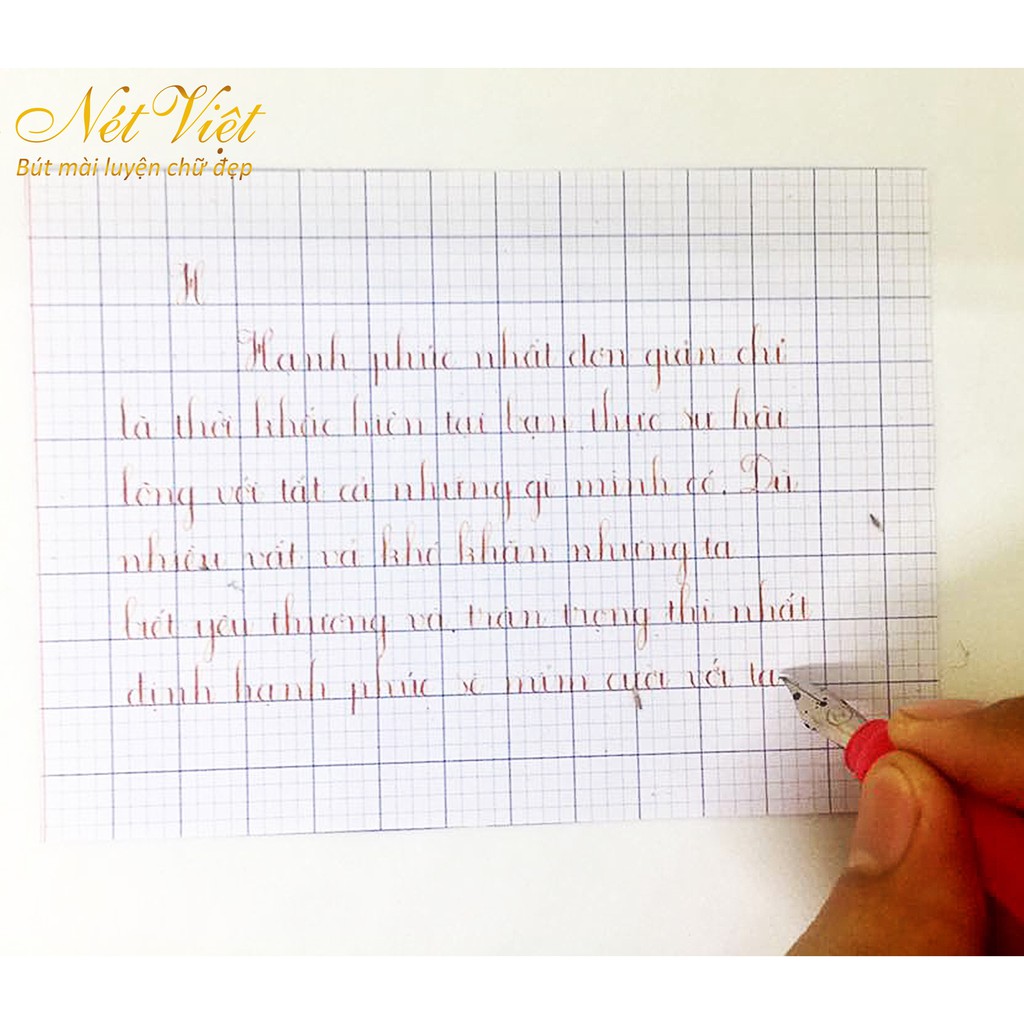 Nét Việt
Bút mài luyện chữ đẹp
H
Hạnh phúc nhất đơn giản chỉ
là thời khắc hiện tại bạn thực sự hài
lòng với tất cả những gì mình có. Dù
nhiều vất vả khó khăn nhưng ta
biết yêu thương và trân trọng thì nhất
định hạnh phúc sẽ mỉm cười với ta